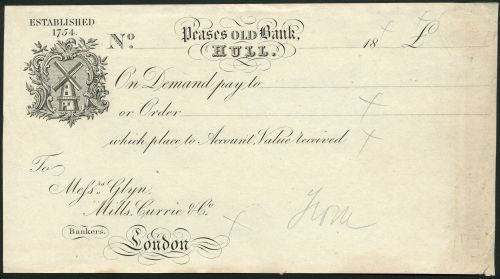 ESTABLISHED
1754.
Nº.
Peases OLD Bank,
HULL.
18
£
On Demand pay to
or Order
which place to Account, Value received
To
Messrs. Glyn,
Mills, Currie & Co.
Bankers.
London